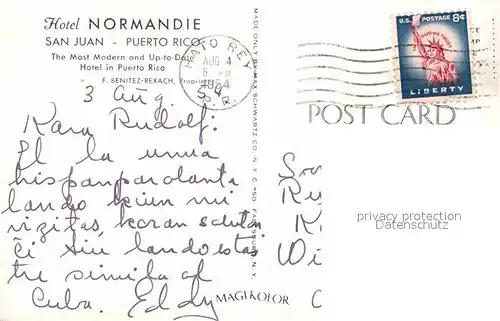 Hotel NORMANDIE
SAN JUAN - PUERTO RICO
The Most Modern and Up-to-Date
Hotel in Puerto Rico
F. BENITEZ-REXACH, Proprietor
HATO REY
AUG 4
6 PM
1954
P. R.
U.S. POSTAGE 8¢
IN GOD WE TRUST
LIBERTY
POST CARD
MADE ONLY BY MAX SCHWARTZ CO. N.Y.C.
3 Aŭg. 54
Kara Rudolf:
El la unua
hispanparolanta
lando kiun mi
vizitas, koran saluton.
Ĉi tiu lando estas
tre simila al
Cuba. Eddy
MAGIKOLOR
privacy protection
Datenschutz